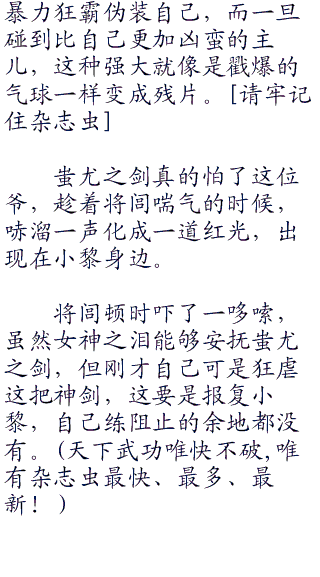 暴力狂霸伪装自己，而一旦
碰到比自己更加凶蛮的主
儿，这种强大就像是戳爆的
气球一样变成残片。[请牢记
住杂志虫]
蚩尤之剑真的怕了这位
爷，趁着将闾喘气的时候，
哧溜一声化成一道红光，出
现在小黎身边。
将闾顿时吓了一哆嗦，
虽然女神之泪能够安抚蚩尤
之剑，但刚才自己可是狂虐
这把神剑，这要是报复小
黎，自己练阻止的余地都没
有。(天下武功唯快不破,唯
有杂志虫最快、最多、最
新！)